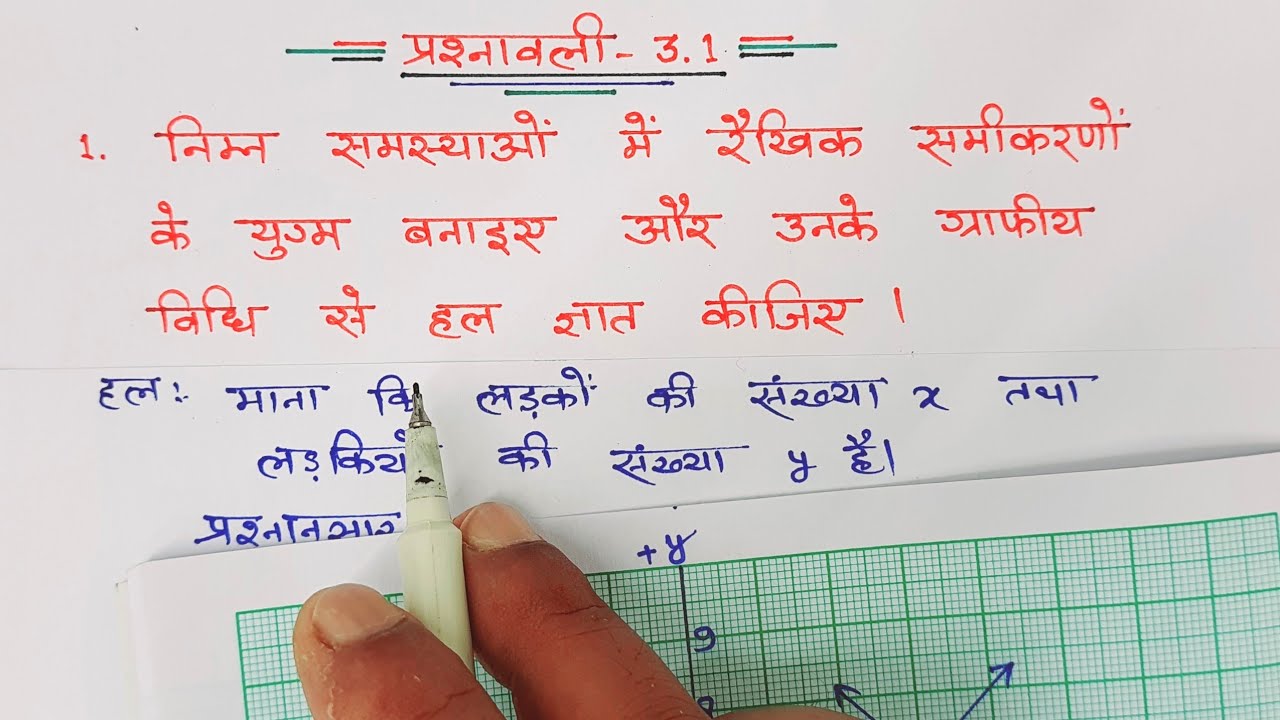 प्रश्नावली - 3.1
1. निम्न समस्याओं में रैखिक समीकरणों
के युग्म बनाइए और उनके ग्राफीय
विधि से हल ज्ञात कीजिए ।
हल:- माना कि लड़कों की संख्या x तथा
लड़कियों की संख्या y है।
प्रश्नानुसार
+y
9